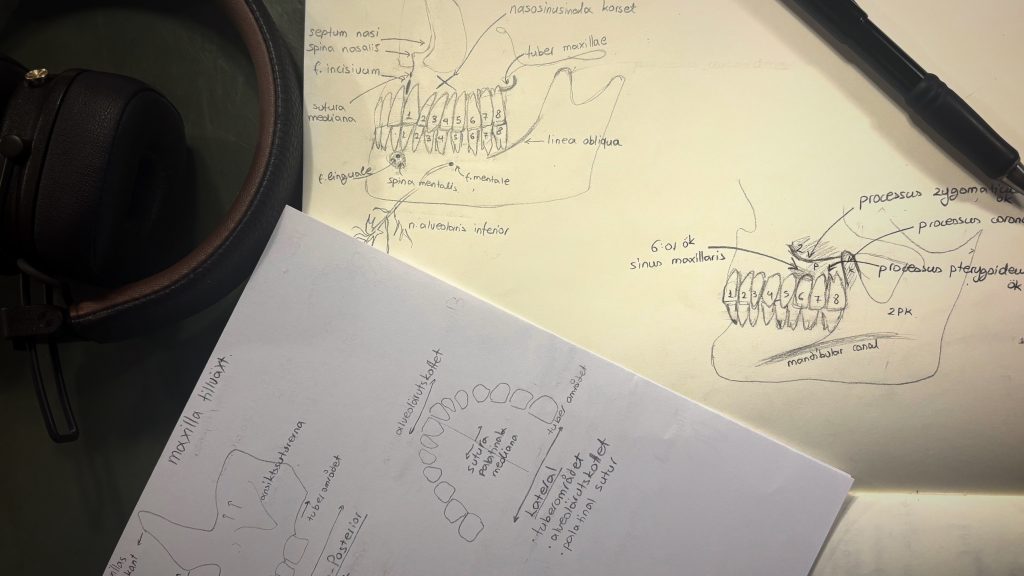 nasosinusinala korset
septum nasi
spina nasalis
tuber maxillae
f. incisivum
sutura
mediana
1 2 3 4 5 6 7 8
1 2 3 4 5 6 7 8
linea obliqua
f. linguale
spina mentalis
f. mentale
n. alveolaris inferior
processus zygomatic
ök
processus corono
6:01 ök
sinus maxillaris
processus pterygoideu
ök
1 2 3 4 5 6 7 8
2PK
mandibular canal
maxilla tillväxt
alveolarutskottet
sutura
palatinala
mediana
tuber området
Lateral
· tuberområdet
· alveolarutskottet
· palatinal sutur
ansiktssuturerna
tuberområdet
Posterior
kant